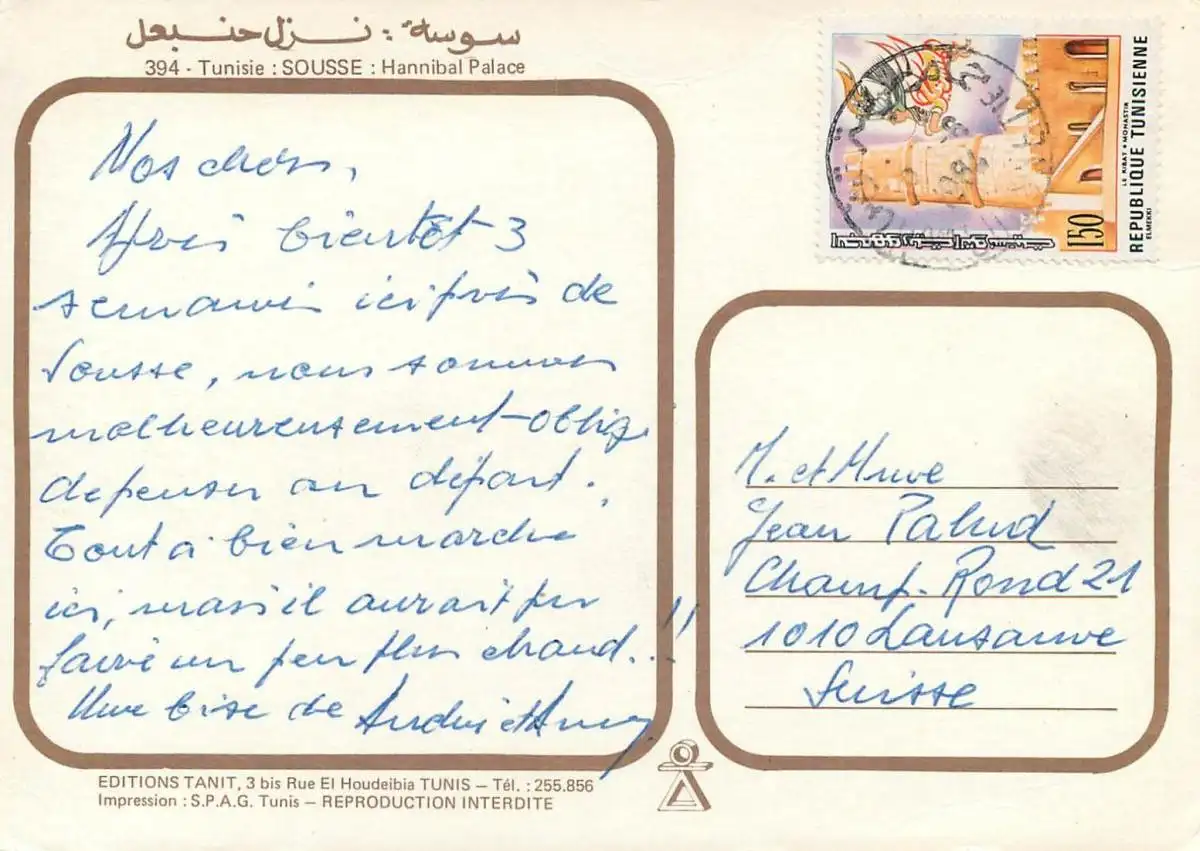 سوسة : نزل حنبعل
394 - Tunisie : SOUSSE : Hannibal Palace
Nos chers,
Après bientôt 3
semaines ici près de
Sousse, nous sommes
malheureusement oblig
de penser au départ.
Tout a bien marché
ici, mais il aurait pu
faire un peu plus chaud..!!
Une bise de André et
M. et Mme
Jean Palud
Champ-Rond 21
1010 Lausanne
Suisse
REPUBLIQUE TUNISIENNE
LE RIBAT • MONASTIR
ELMEKKI
150
EDITIONS TANIT, 3 bis Rue El Houdeibia TUNIS – Tél. : 255.856
Impression : S.P.A.G. Tunis – REPRODUCTION INTERDITE